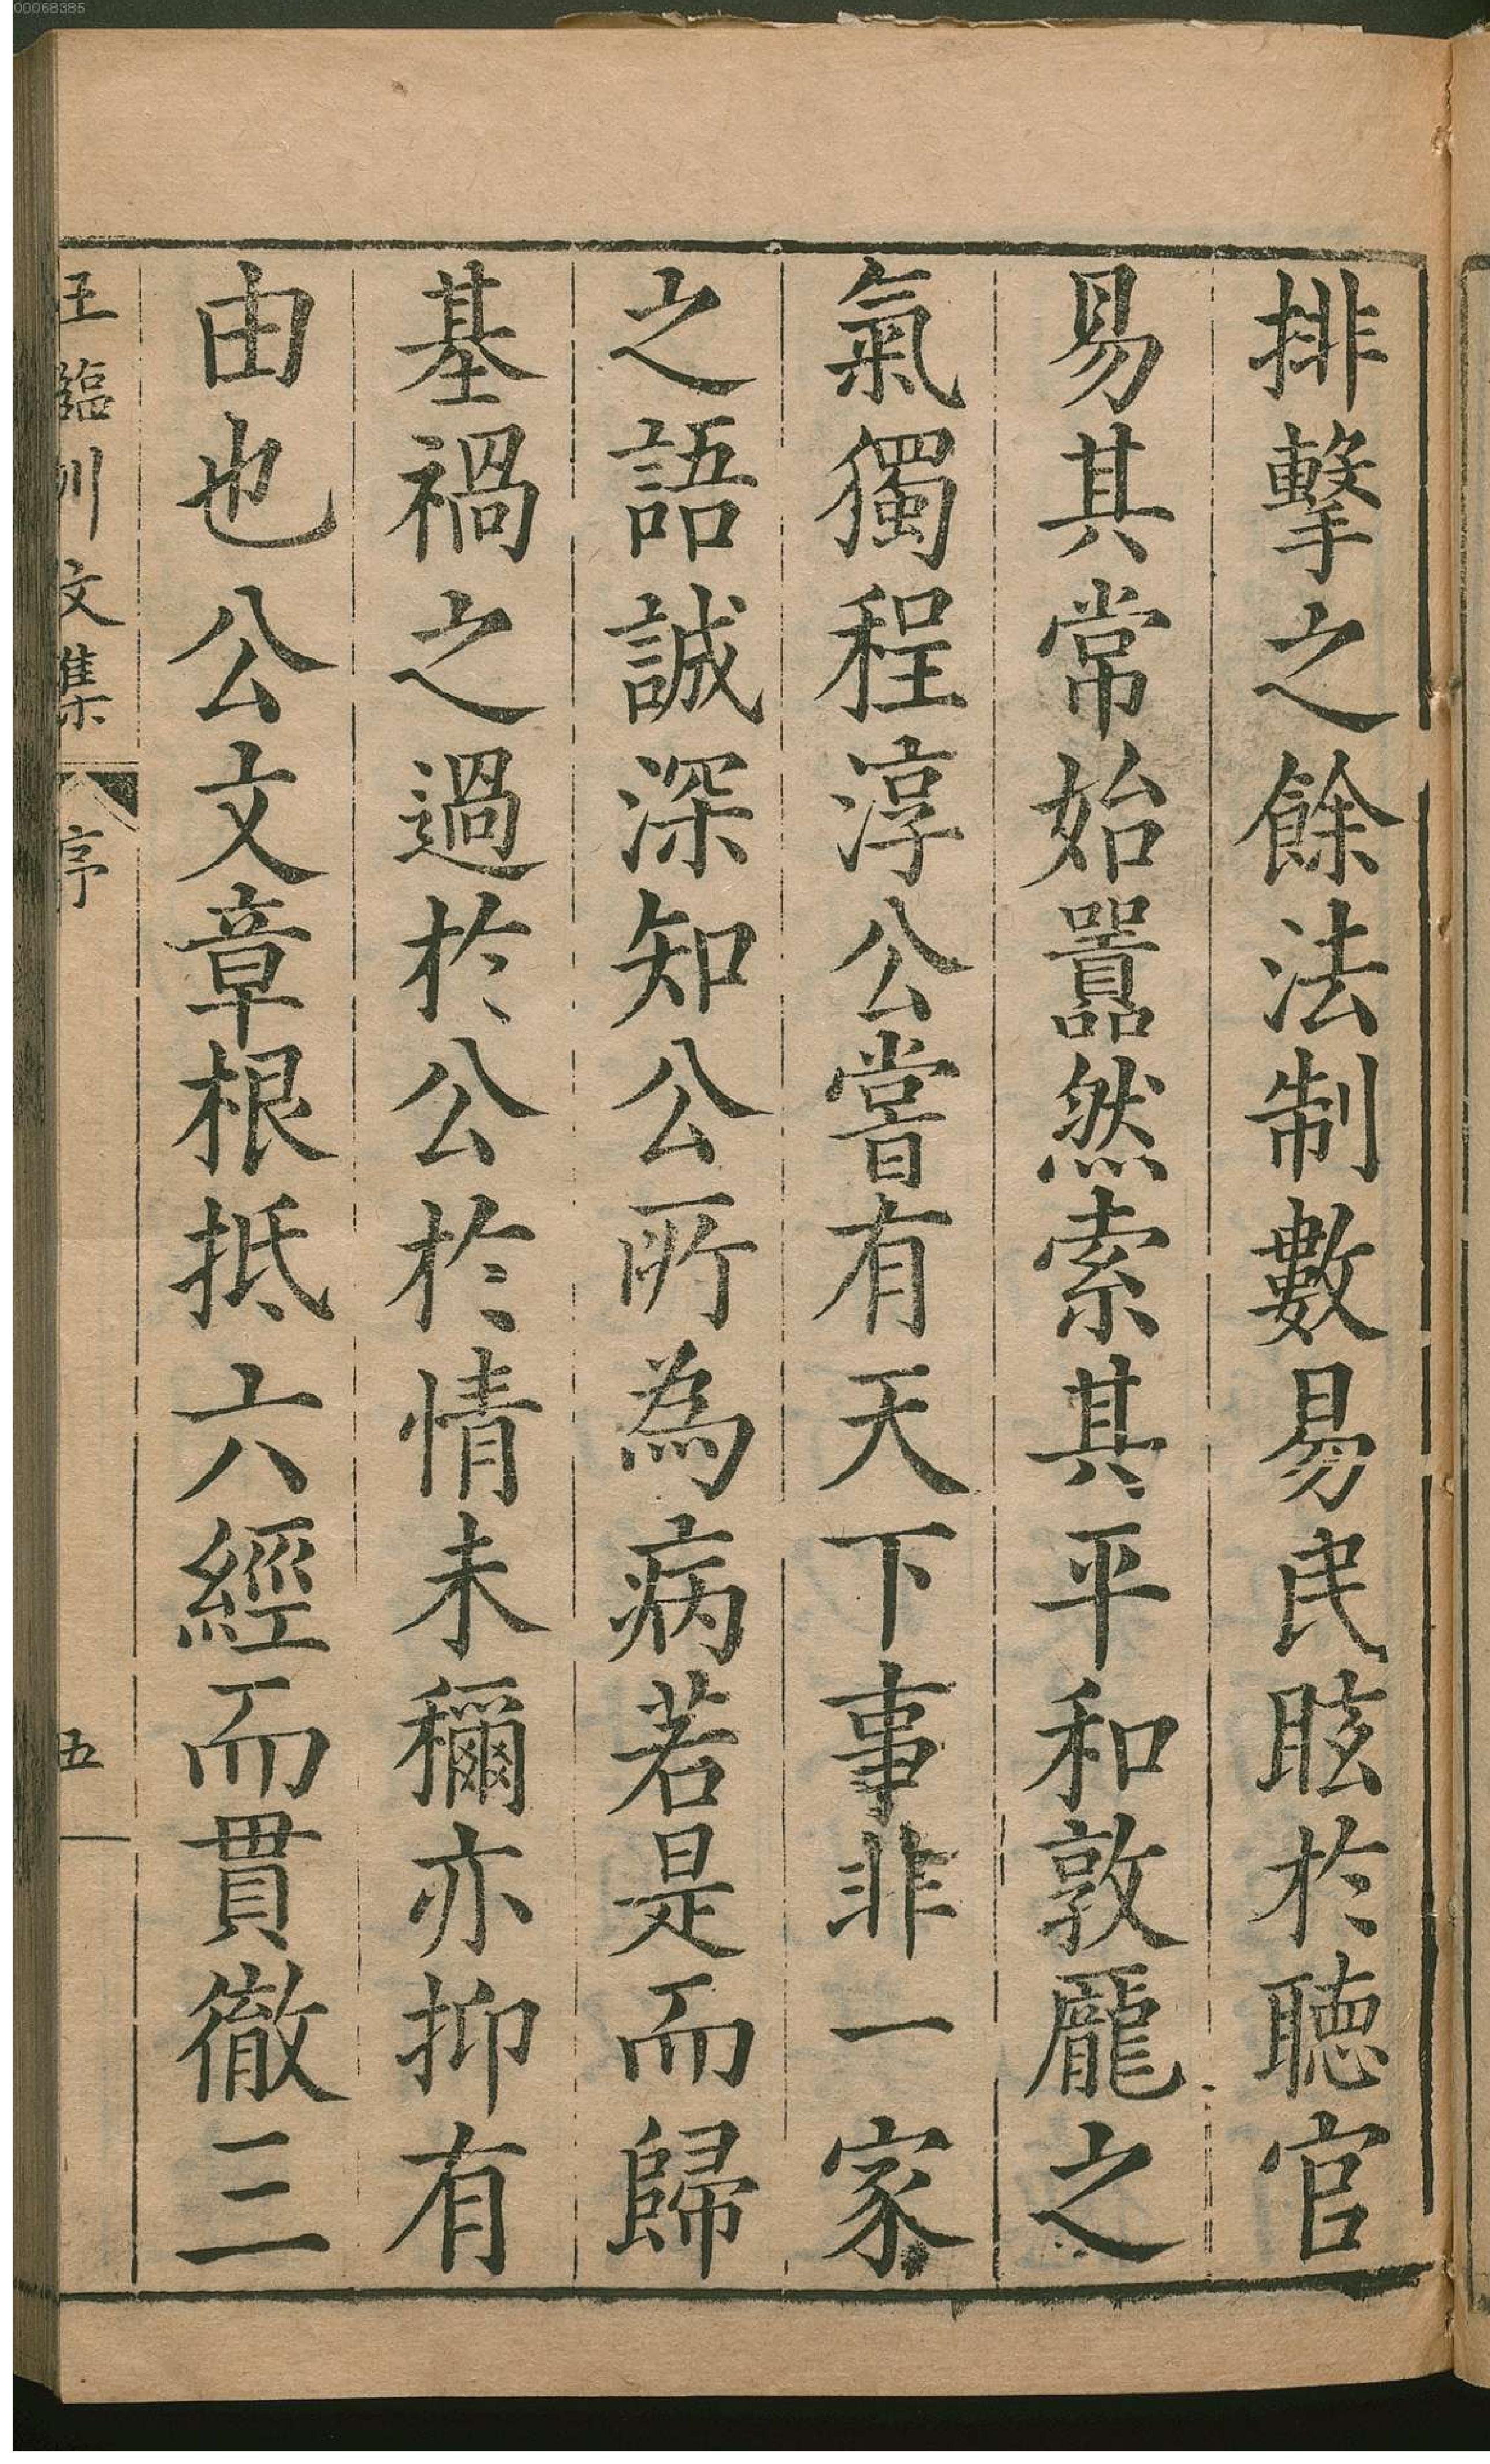 00068385
排擊之餘法制數易民眩於聽官
易其常始囂然索其平和敦龐之
氣獨程淳公嘗有天下事非一家
之語誠深知公所為病若是而歸
基禍之過於公於情未稱亦抑有
由也公文章根抵六經而貫徹三
王臨川文集 序 五